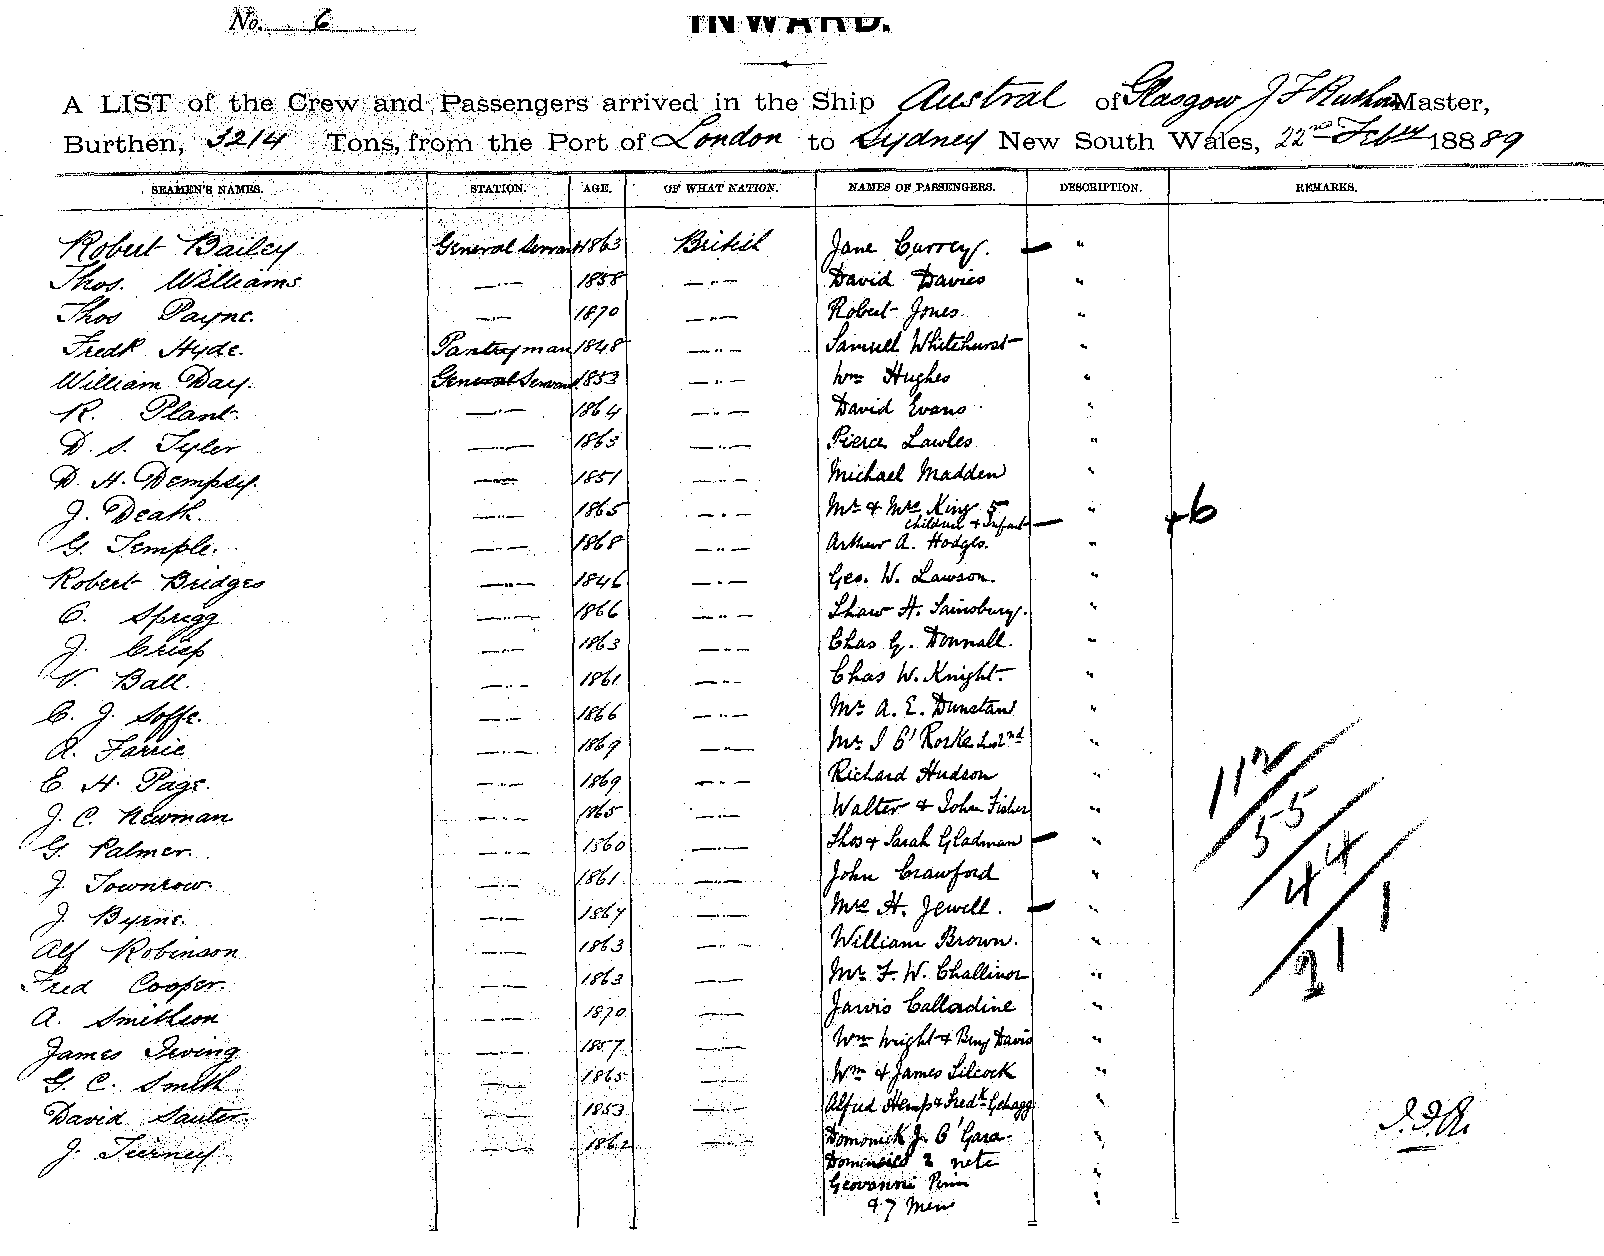 No. 6
INWARD.
A LIST of the Crew and Passengers arrived in the Ship Austral of Glasgow J F Master,
Burthen, 3214 Tons, from the Port of London to Sydney New South Wales, 22nd Feby 18889
SEAMEN'S NAMES. STATION. AGE. OF WHAT NATION. NAMES OF PASSENGERS. DESCRIPTION. REMARKS.
Robert Bailey General Servant 1863 British Jane Currey. — "
Thos. Williams — 1858 — " — David Davies "
Thos Payne. — 1870 — " — Robert Jones "
Fredk Hyde. Pantryman 1848 — " — Samuel Whitehurst "
William Day. General Servant 1853 — " — Wm Hughes "
R. Plant. — 1864 — " — David Evans "
D. S. Tyler — 1863 — " — Pierce Lawles "
D. H. Dempsy. — 1851 — " — Michael Madden "
J. Death. — 1865 — " — Mr & Mrs King 5 " +6
children & Infant —
G. Temple. — 1868 — " — Arthur A. Hodges. "
Robert Bridges — 1846 — " — Geo. W. Lawson. "
C. Spregg — 1866 — " — Shaw H. Sainsbury. "
J. Crisp — 1863 — " — Chas G. Donnall. "
V. Ball. — 1861 — " — Chas W. Knight. "
C. J. Soffe. — 1866 — " — Mr A. E. Dunstan "
A. Farrie — 1869 — Mr J O'Rorke "
E H. Page. — 1869 — " — Richard Hudson "
J. C. Newman — 1865 — Walter & John Fisher " 112
G. Palmer. — 1860 — Thos & Sarah Gladman — " 55
J. Townrow. — 1861 — John Crawford " 44
J. Byrne. — 1867 — Mrs H. Jewell. — " 1
Alf Robinson — 1863 — William Brown. "
Fred Cooper. — 1863 — Mr F. W. Challinor " 21
A. Smithson — 1870 — Jarvis Calladine "
James Irving — 1857 — Wm Wright & Benj Davis "
G. C. Smith — 1865 — Wm & James Silcock "
David Sauter — 1853 — Alfred Hemp & Fredk "
J. Tierney — 1862 — Domonick J. O'Gara "
2
Geovanni "
& 7 Men "